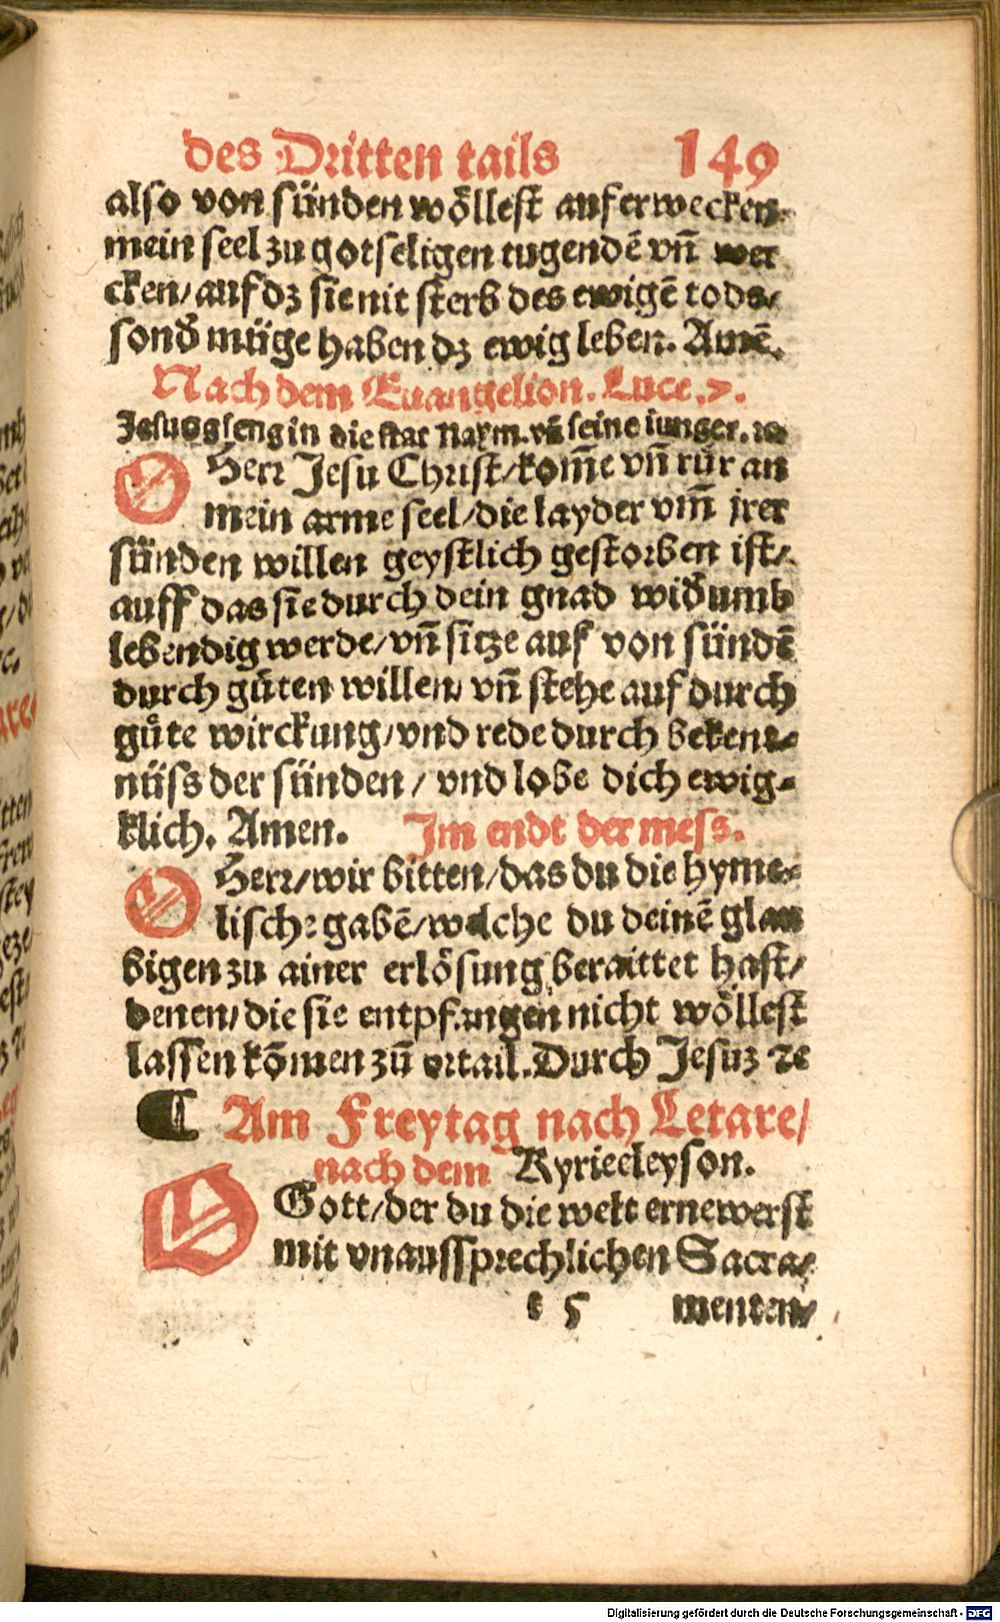 des Dritten tails 149
also von sünden wöllest auferwecken
mein seel zu gotseligen tugendē vñ wer
cken/ auf dz sie nit sterb des ewigē tods/
sond̄ müge haben dz ewig leben. Amē.
Nach dem Euangelion. Luce. 7.
Jesus gieng in die stat Naym. vñ seine iunger. ꝛc
O Herr Jesu Christ/ kom̄e vñ rür an
mein arme seel/ die layder vm̄ jrer
sünden willen geystlich gestorben ist/
auff das sie durch dein gnad wid̄umb
lebendig werde/ vñ sitze auf von sündē
durch gůten willen/ vñ stehe auf durch
gůte wirckung/ vnd rede durch bekent-
nüss der sünden/ vnd lobe dich ewig-
klich. Amen. Im endt der mess.
O Herr/ wir bitten/ das du die hyme-
lische gabē/ welche du deinē glau
bigen zu ainer erlösung beraittet hast/
denen/ die sie entpfangen nicht wöllest
lassen kōmen zū ortail. Durch Jesuz ꝛc
¶ Am Freytag nach Letare/
nach dem Kyrieeleyson.
O Gott/ der du die welt ernewerst
mit vnaussprechlichen Sacra-
t 5 menten/
Digitalisierung gefördert durch die Deutsche Forschungsgemeinschaft - DFG